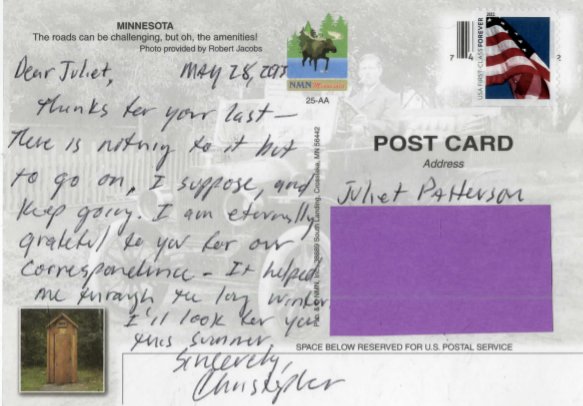 MINNESOTA
The roads can be challenging, but oh, the amenities!
Photo provided by Robert Jacobs
Dear Juliet, MAY 28,
Thanks for your last—
There is nothing to it but
to go on, I suppose, and
keep going. I am eternally
grateful to you for our
correspondence – It helped
me through the long winter
I'll look for you
this summer,
Sincerely,
Christopher
NMN
25-AA
2011
USA FIRST-CLASS FOREVER
7 4
2
POST CARD
Address
Juliet Patterson
South Landing, Crosslake, MN 56442
SPACE BELOW RESERVED FOR U.S. POSTAL SERVICE